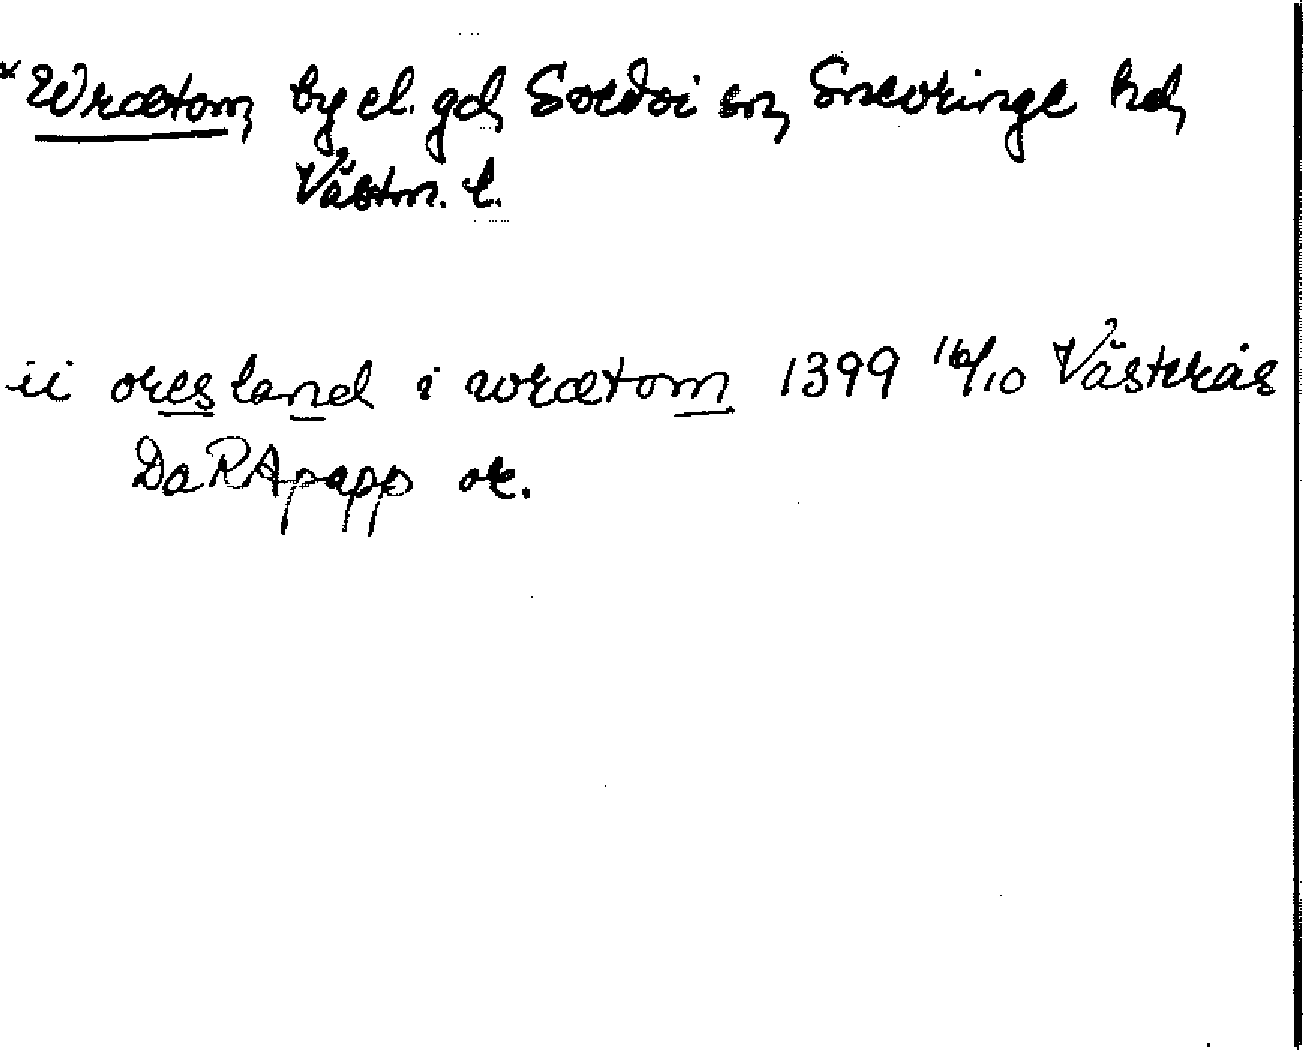 *Wrætom, by el. gd, Svedvi sn, Snevringe hd,
Västm. l.
ii øresland i wrætom 1399 16/10 Västerås
Da RApapp or.